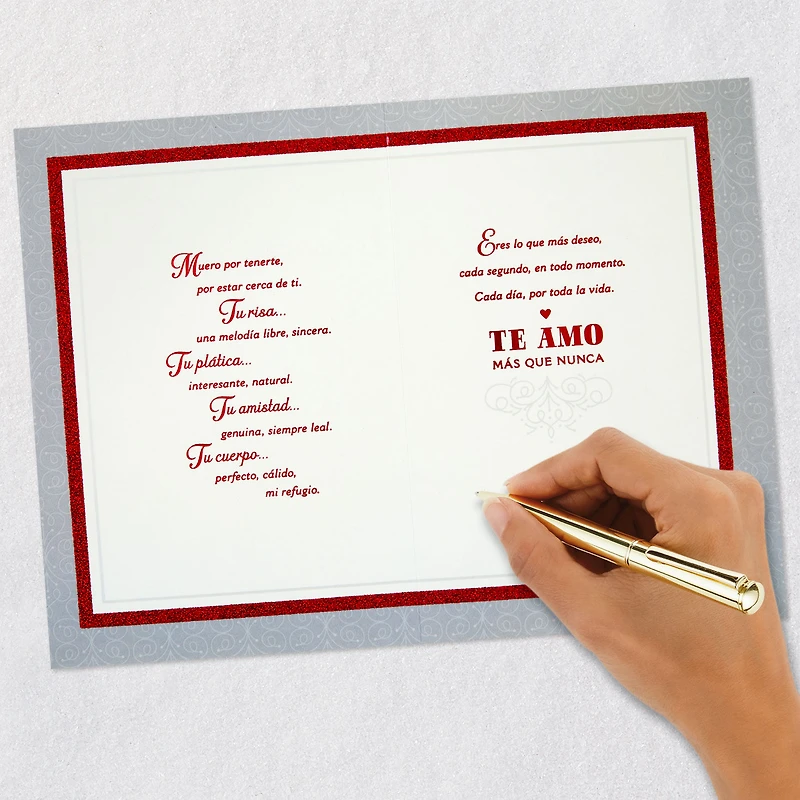 Muero por tenerte,
por estar cerca de ti.
Tu risa...
una melodía libre, sincera.
Tu plática...
interesante, natural.
Tu amistad...
genuina, siempre leal.
Tu cuerpo...
perfecto, cálido,
mi refugio.
Eres lo que más deseo,
cada segundo, en todo momento.
Cada día, por toda la vida.
TE AMO
MÁS QUE NUNCA